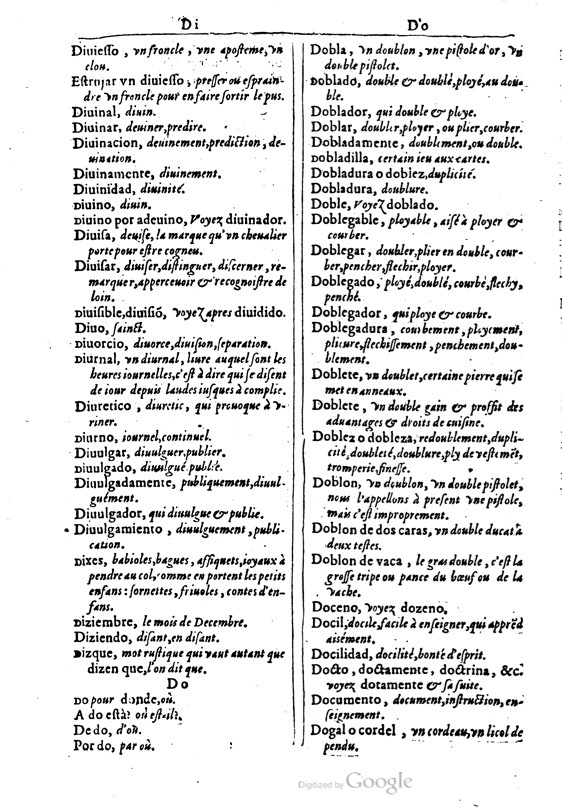 Di
Diuiesso, vn froncle, vne aposteme, vn
clou.
Estrujar vn diuiesso, presser ou esprain-
dre vn froncle pour en faire sortir le pus.
Diuinal, diuin.
Diuinar, deuiner, predire.
Diuinacion, deuinement, prediction, de-
uination.
Diuinamente, diuinement.
Diuinidad, diuinité.
Diuino, diuin.
Diuino por adeuino, Voyez diuinador.
Diuisa, deuise, la marque qu'vn cheualier
porte pour estre cogneu.
Diuisar, diuiser, distinguer, discerner, re-
marquer, apperceuoir & recognoistre de
loin.
Diuisible, diuisiō, voyez apres diuidido.
Diuo, sainct.
Diuorcio, diuorce, diuision, separation.
Diurnal, vn diurnal, liure auquel sont les
heures iournelles, c'est à dire qui se disent
de iour depuis laudes iusques à complie.
Diuretico, diuretic, qui prouoque à v-
riner.
Diurno, iournel, continuel.
Diuulgar, diuulguer, publier.
Diuulgado, diuulgué, publié.
Diuulgadamente, publiquement, diuul-
guément.
Diuulgador, qui diuulgue & publie.
Diuulgamiento, diuulguement, publi-
cation.
Dixes, babioles, bagues, affiquets, ioyaux à
pendre au col, comme en portent les petits
enfans: sornettes, friuoles, contes d'en-
fans.
Diziembre, le mois de Decembre.
Diziendo, disant, en disant.
Dizque, mot rustique qui vaut autant que
dizen que, l'on dit que.
Do
Do pour donde, où.
A do està? où est-il?
De do, d'où.
Por do, par où.
Do
Dobla, vn doublon, vne pistole d'or, vn
double pistolet.
Doblado, double & doublé, ployé, au dou-
ble.
Doblador, qui double & ploye.
Doblar, doubler, ployer, ou plier, courber.
Dobladamente, doublement, ou double.
Dobladilla, certain ieu aux cartes.
Dobladura o doblez, duplicité.
Dobladura, doublure.
Doble, Voyez doblado.
Doblegable, ployable, aisé à ployer &
courber.
Doblegar, doubler, plier en double, cour-
ber, pencher, flechir, ployer.
Doblegado, ployé, doublé, courbé, flechy,
penché.
Doblegador, qui ploye & courbe.
Doblegadura, courbement, ployement,
plicure, flechissement, penchement, dou-
blement.
Doblete, vn doublet, certaine pierre qui se
met en anneaux.
Doblete, vn double gain & proffit des
aduantages & droits de cuisine.
Doblez o dobleza, redoublement, dupli-
cité, doubleté, doublure, ply de vestemēt,
tromperie, finesse.
Doblon, vn doublon, vn double pistolet,
nous l'appellons à present vne pistole,
mais c'est improprement.
Doblon de dos caras, vn double ducat à
deux testes.
Doblon de vaca, le gras double, c'est la
grosse tripe ou pance du bœuf ou de la
vache.
Doceno, voyez dozeno.
Docil, docile, facile à enseigner, qui apprēd
aisément.
Docilidad, docilité, bonté d'esprit.
Docto, doctamente, doctrina, &c.
voyez dotamente & sa suite.
Documento, document, instruction, en-
seignement.
Dogal o cordel, vn cordeau, vn licol de
pendu.
Digitized by Google